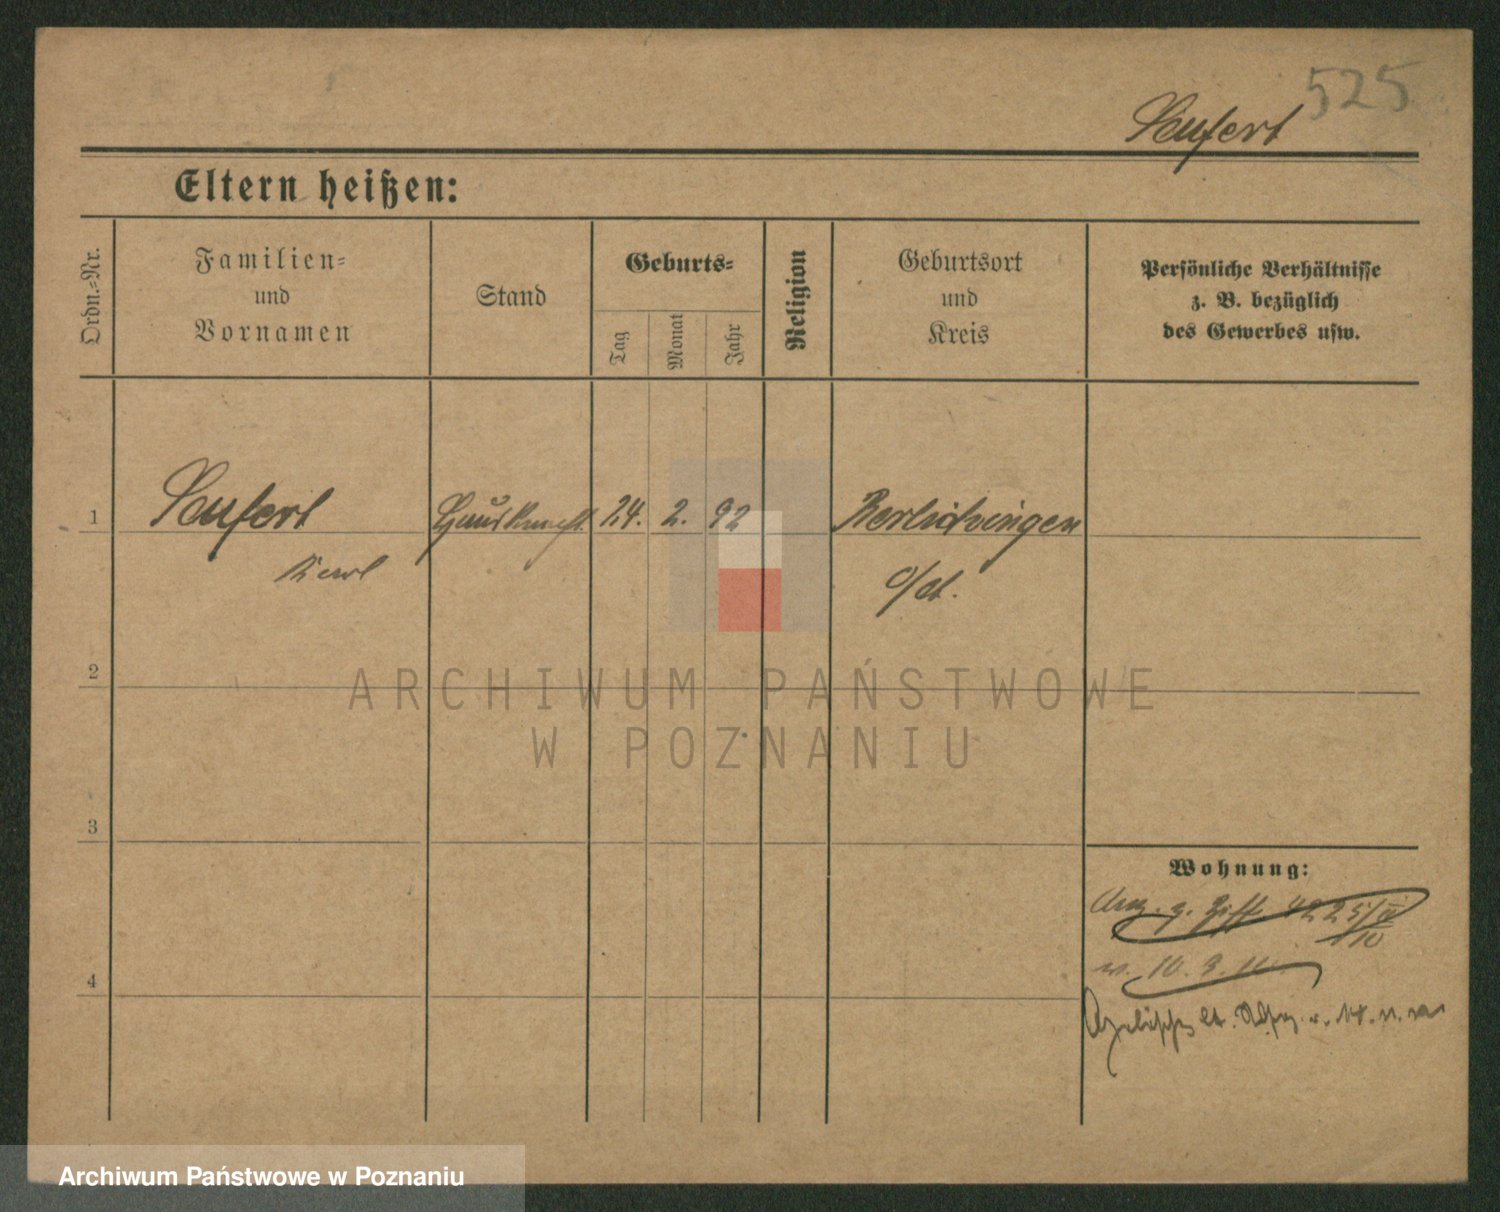 525
Seufert
Eltern heißen:
Ordn.=Nr.
Familien=
und
Vornamen
Stand
Geburts=
Tag
Monat
Jahr
Religion
Geburtsort
und
Kreis
Persönliche Verhältnisse
z. B. bezüglich
des Gewerbes usw.
1
Seufert
Hausknecht
24. 2. 92
Berlichingen
Karl
2
ARCHIWUM PAŃSTWOWE
W POZNANIU
3
Wohnung:
4
Archiwum Państwowe w Poznaniu